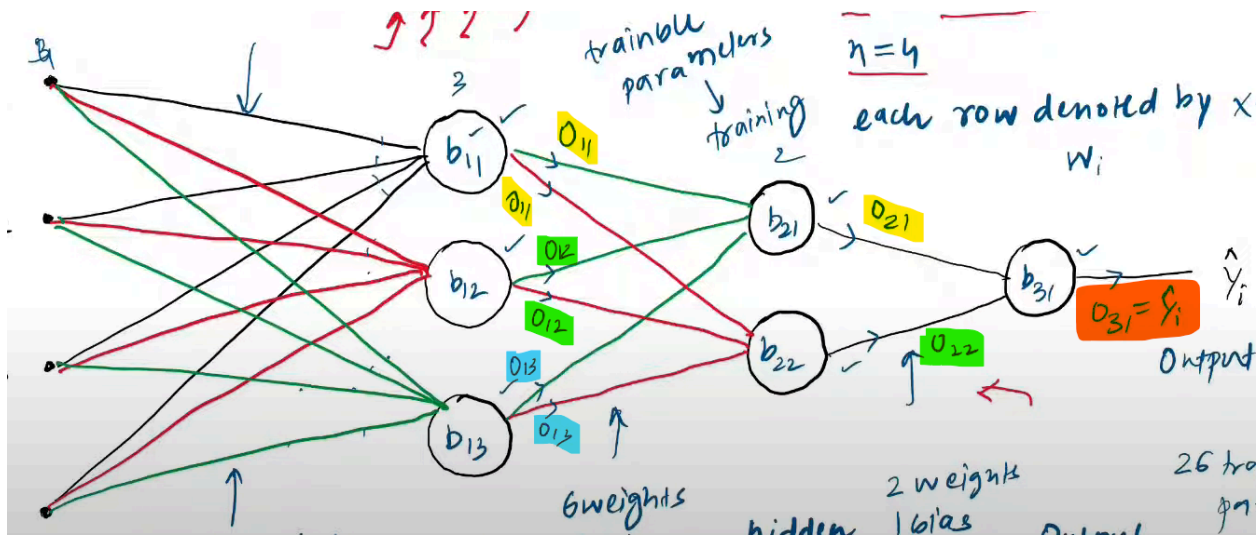 trainble
parameters
training
n=4
each row denoted by x
w_i
3
2
b_11
b_12
b_13
O_11
O_11
O_12
O_12
O_13
O_13
b_21
b_22
O_21
O_22
b_31
O_31 = ŷ_i
ŷ_i
Output
6 weights
2 weights
1 bias
hidden
Output
26 tra
pa